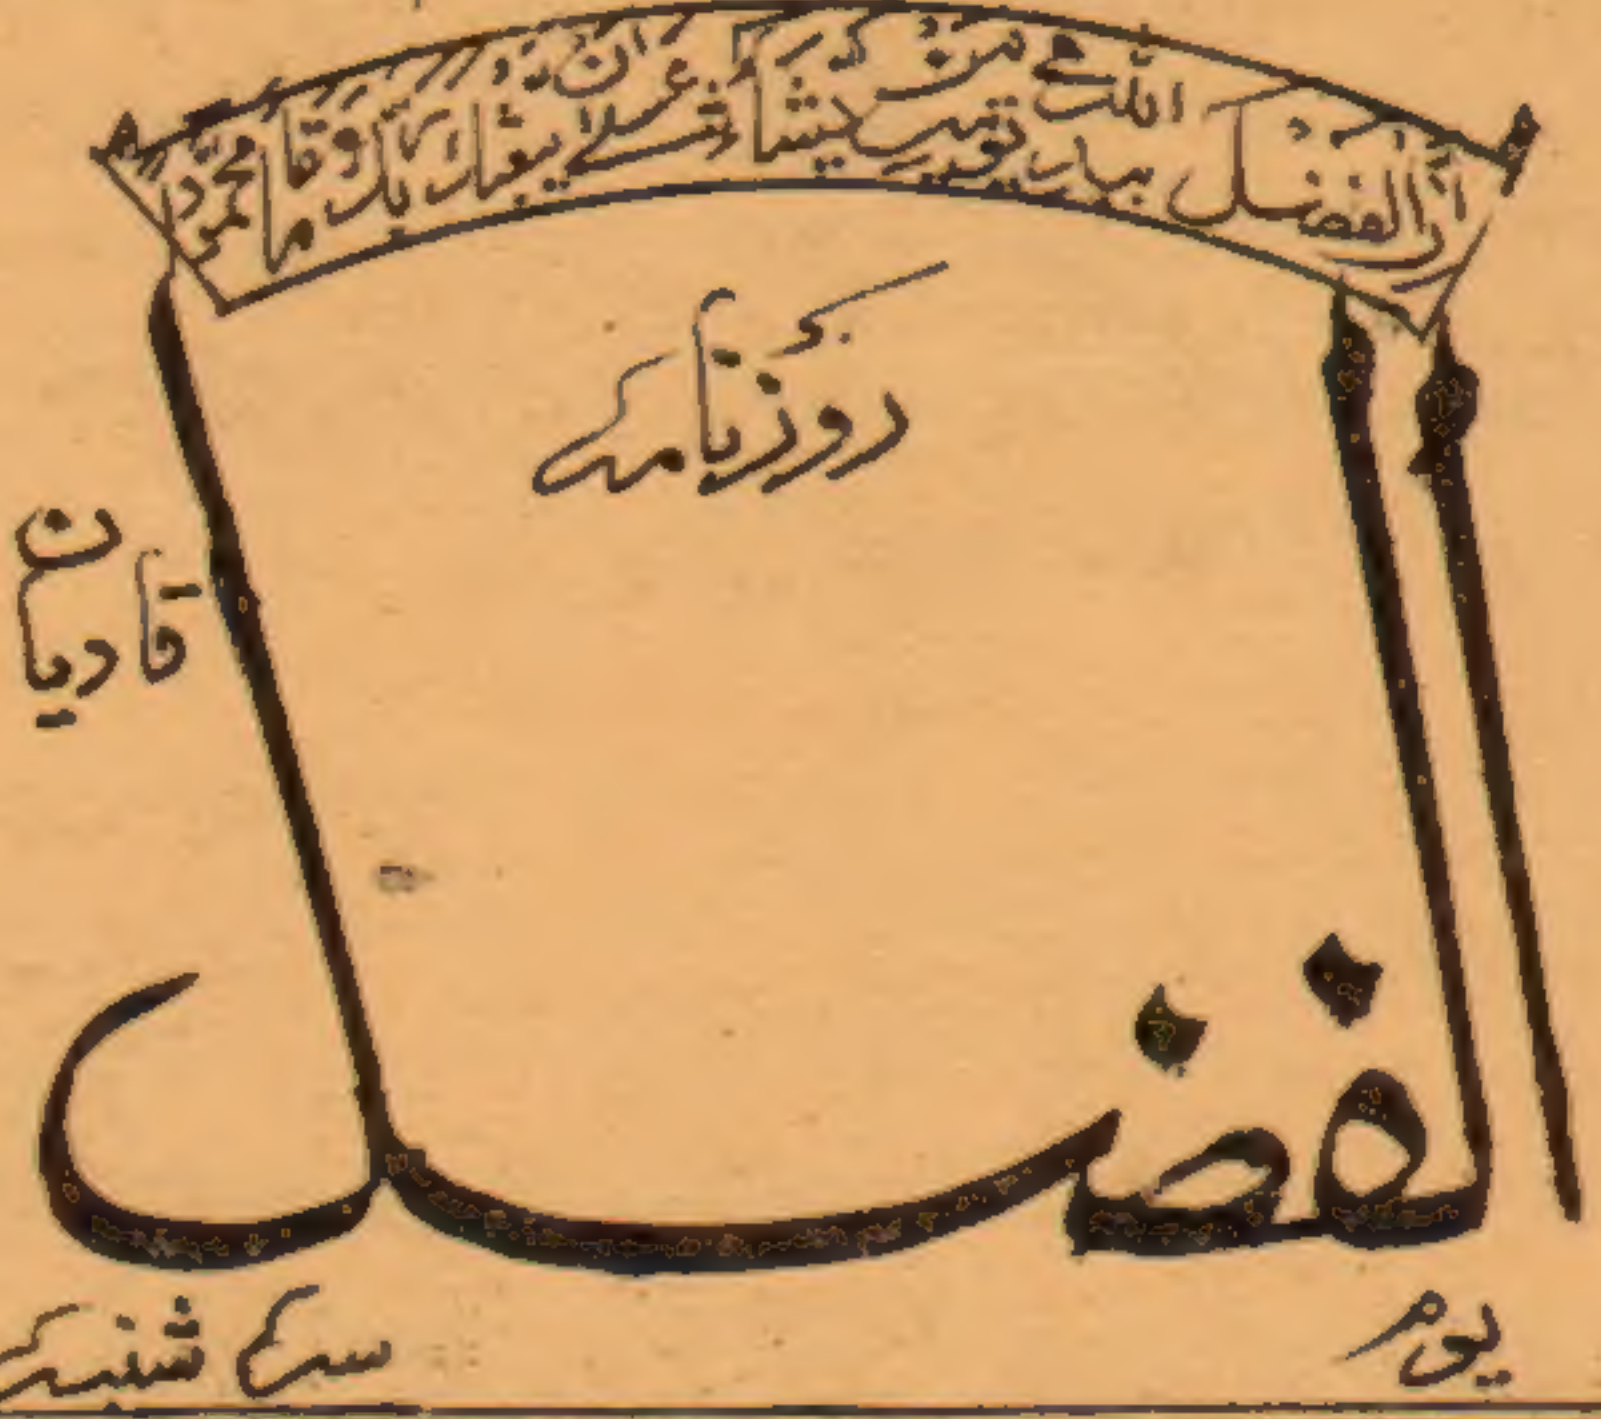 ان الفضل بید اللہ یؤتیہ من یشاء عسی ان یبعثک ربک مقاما محمودا
روزنامہ
الفضل
قادیان
یوم سہ شنبہ